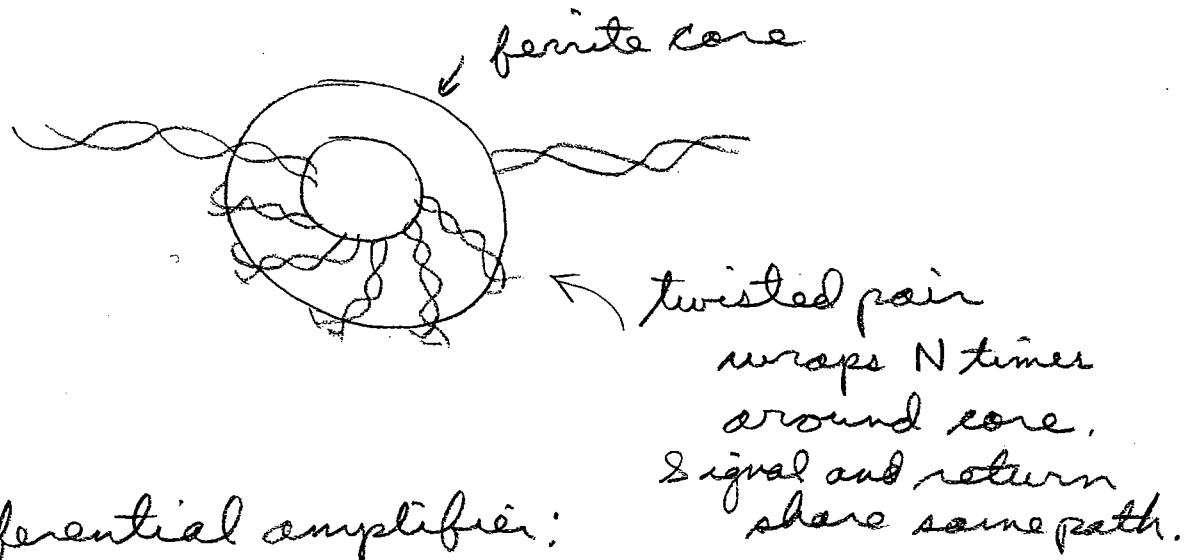 ferrite core
twisted pair
wraps N times
around core.
Signal and return
share same path.
ferential amplifier: